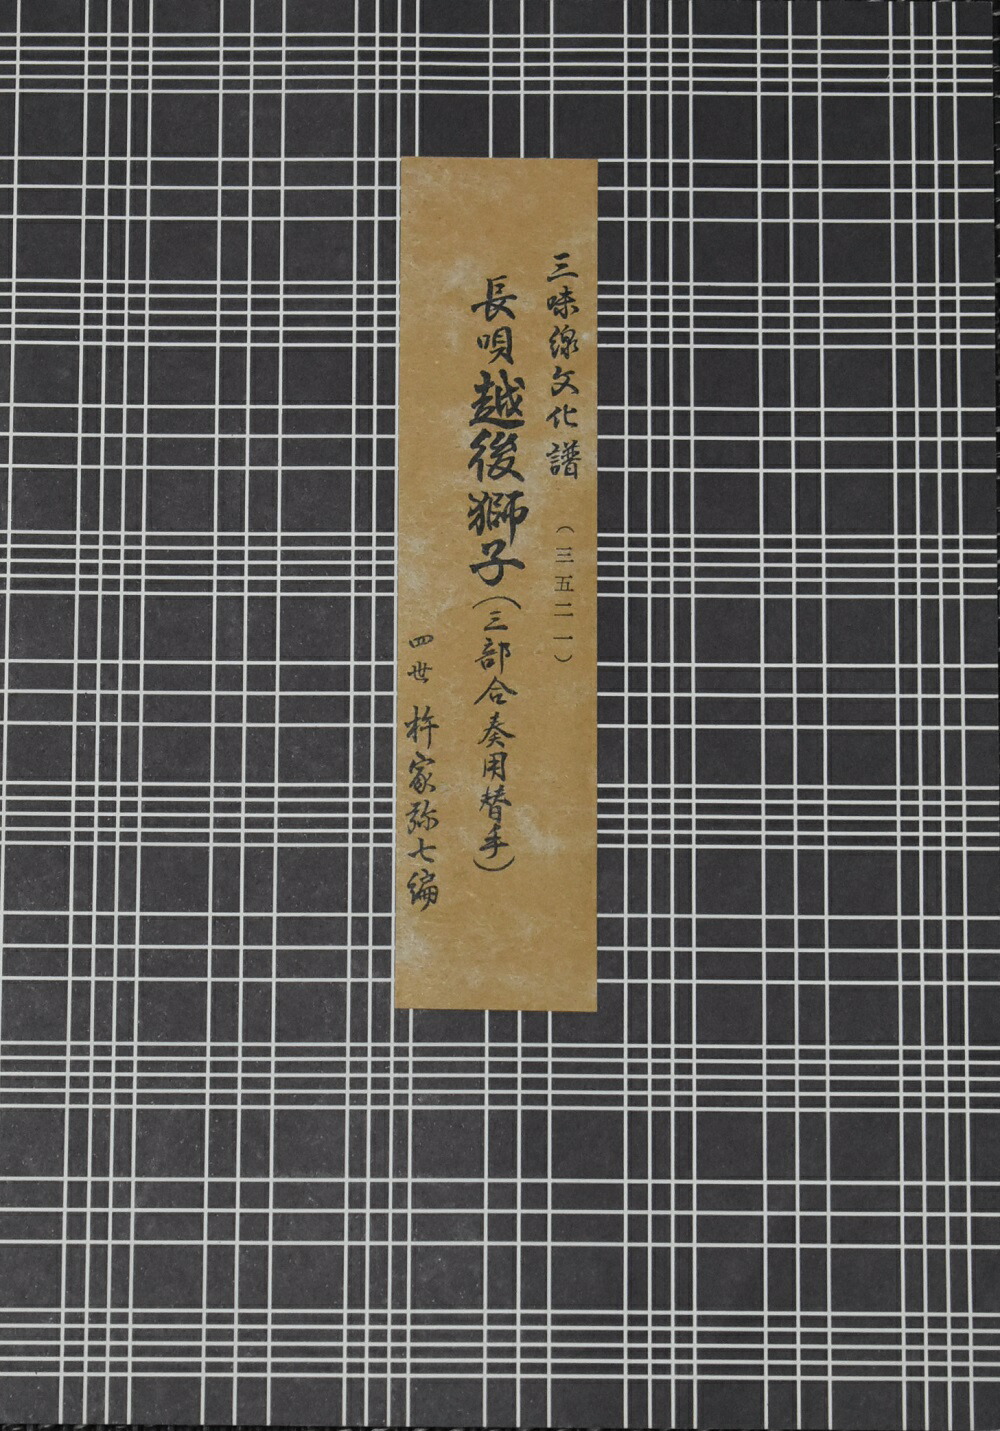 三味線文化譜 (三五二一)
長唄越後獅子(三部合奏用替手)
四世 杵家弥七編